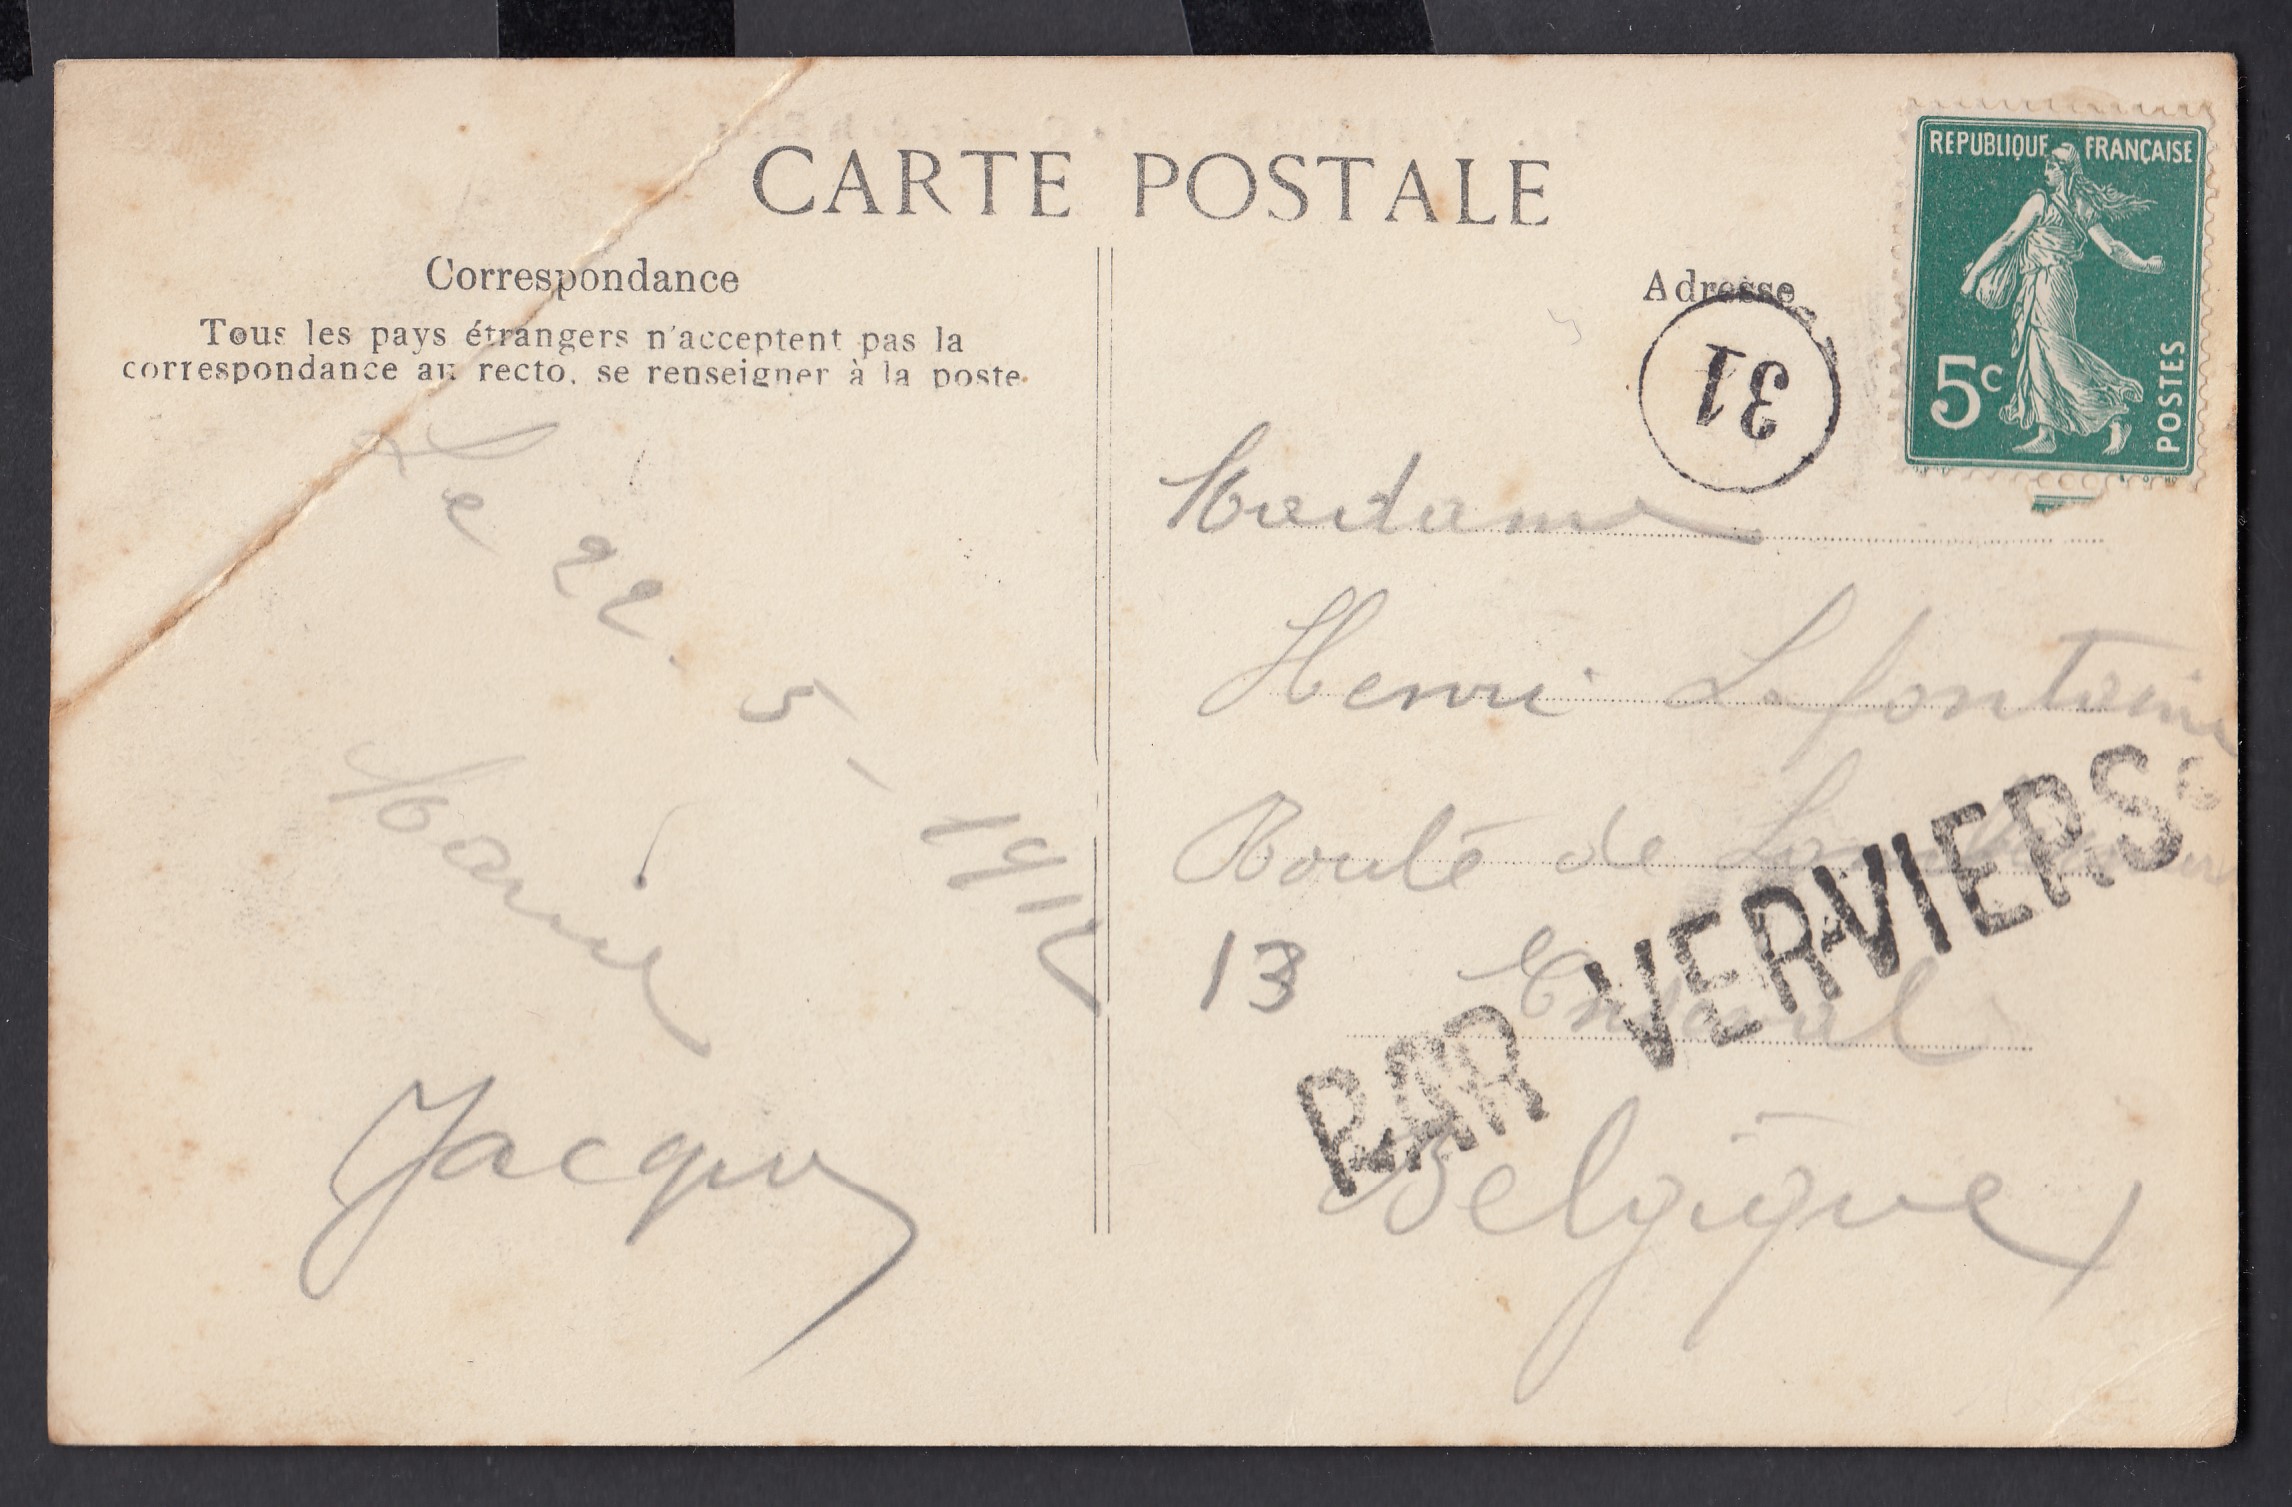 CARTE POSTALE
Correspondance
Tous les pays étrangers n'acceptent pas la
correspondance au recto, se renseigner à la poste.
Le 22. 5 - 191
Jacques
Adresse
31
REPUBLIQUE FRANÇAISE
5c
POSTES
Madame
Henri Lafontaine
Route de
13 Ensival
PAR VERVIERS
Belgique